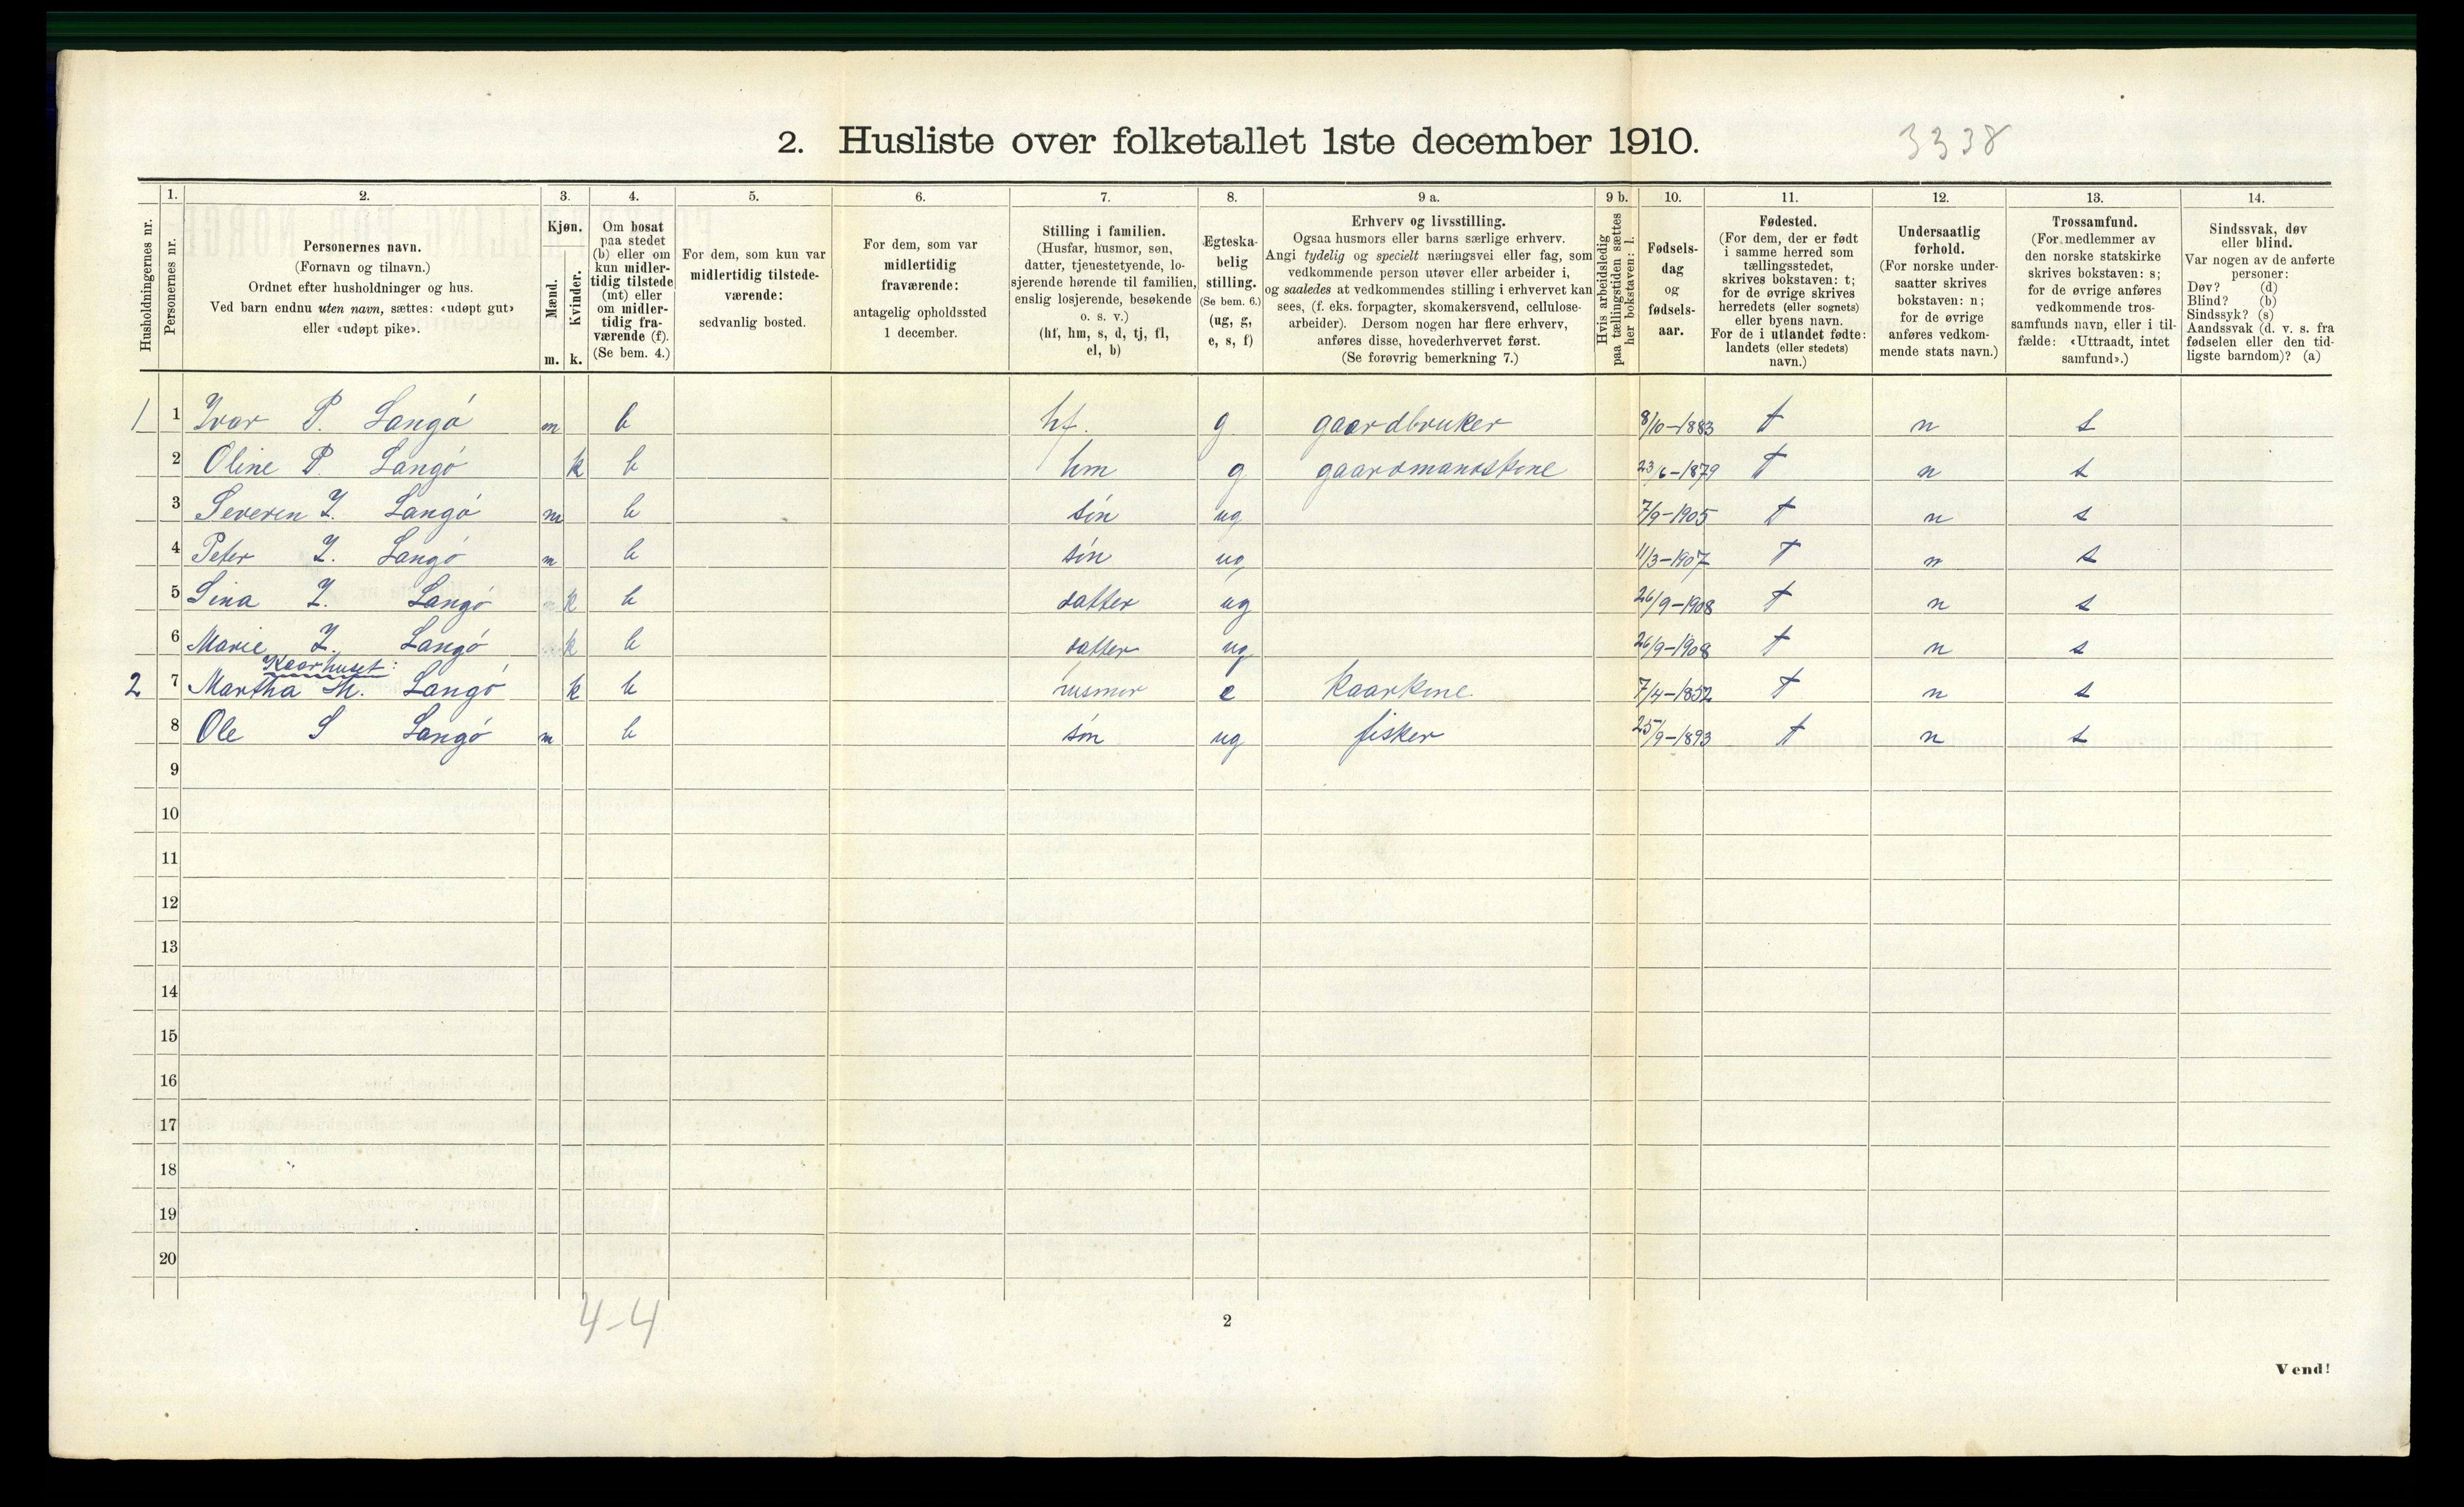 2. Husliste over folketallet 1ste december 1910.
3338
Husholdningernes nr.
1.
Personernes nr.
2.
Personernes navn.
(Fornavn og tilnavn.)
Ordnet efter husholdninger og hus.
Ved barn endnu uten navn, sættes: «udøpt gut»
eller «udøpt pike».
3.
Kjøn.
Mænd.
Kvinder.
m. k.
4.
Om bosat
paa stedet
(b) eller om
kun midler-
tidig tilstede
(mt) eller
om midler-
tidig fra-
værende (f).
(Se bem. 4.)
5.
For dem, som kun var
midlertidig tilstede-
værende:
sedvanlig bosted.
6.
For dem, som var
midlertidig
fraværende:
antagelig opholdssted
1 december.
7.
Stilling i familien.
(Husfar, husmor, søn,
datter, tjenestetyende, lo-
sjerende hørende til familien,
enslig losjerende, besøkende
o. s. v.)
(hf, hm, s, d, tj, fl,
el, b)
8.
Egteska-
belig
stilling.
(Se bem. 6.)
(ug, g,
e, s, f)
9 a.
Erhverv og livsstilling.
Ogsaa husmors eller barns særlige erhverv.
Angi tydelig og specielt næringsvei eller fag, som
vedkommende person utøver eller arbeider i,
og saaledes at vedkommendes stilling i erhvervet kan
sees, (f. eks. forpagter, skomakersvend, cellulose-
arbeider). Dersom nogen har flere erhverv,
anføres disse, hovederhvervet først.
(Se forøvrig bemerkning 7.)
9 b.
Hvis arbeidsledig
paa tællingstiden sættes
her bokstaven: l.
10.
Fødsels-
dag
og
fødsels-
aar.
11.
Fødested.
(For dem, der er født
i samme herred som
tællingsstedet,
skrives bokstaven: t;
for de øvrige skrives
herredets (eller sognets)
eller byens navn.
For de i utlandet fødte:
landets (eller stedets)
navn.)
12.
Undersaatlig
forhold.
(For norske under-
saatter skrives
bokstaven: n;
for de øvrige
anføres vedkom-
mende stats navn.)
13.
Trossamfund.
(For medlemmer av
den norske statskirke
skrives bokstaven: s;
for de øvrige anføres
vedkommende tros-
samfunds navn, eller i til-
fælde: «Uttraadt, intet
samfund».)
14.
Sindssvak, døv
eller blind.
Var nogen av de anførte
personer:
Døv? (d)
Blind? (b)
Sindssyk? (s)
Aandssvak (d. v. s. fra
fødselen eller den tid-
ligste barndom)? (a)
1 1 Ivar P. Langó m b hf. g gaardbruker 8/10-1883 t n s
2 Oline P. Langó k b hm g gaardmandskone 23/6-1879 t n s
3 Severen I. Langó m b són ug 7/9-1905 t n s
4 Peter I. Langó m b són ug 11/3-1907 t n s
5 Sina I. Langó k b datter ug 26/9-1908 t n s
6 Marie I. Langó k b datter ug 26/9-1908 t n s
Kaarhuset:
2 7 Martha M. Langó k b husmor e Kaarkone 7/4-1852 t n s
8 Ole S Langó m b són ug fisker 25/9-1893 t n s
9
10
11
12
13
14
15
16
17
18
19
20
4-4
2
Vend!